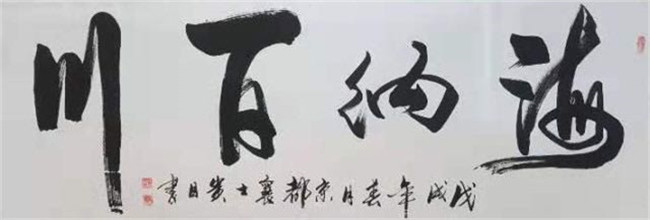 海纳百川
戊戌年春月京都襄士贵月书